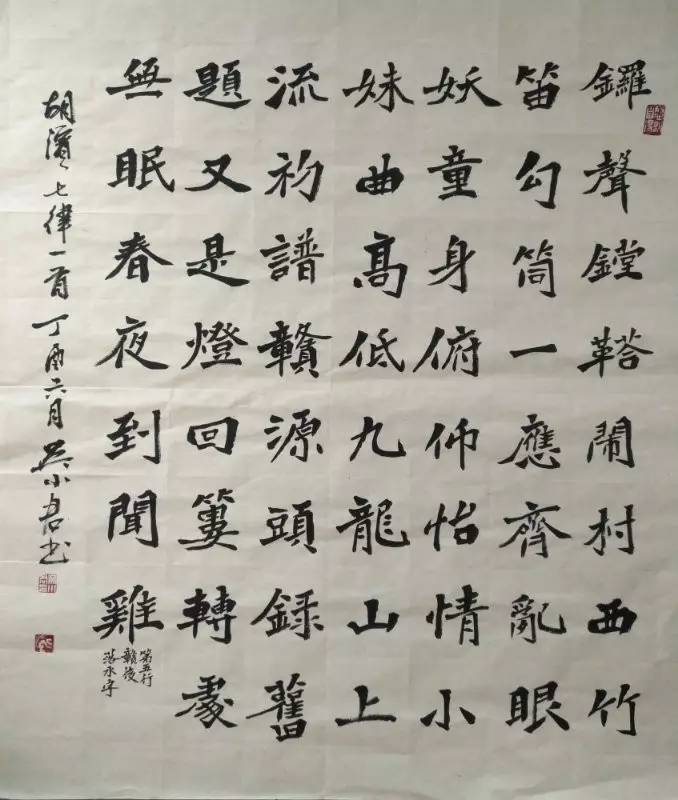 鑼聲鏜鞳鬧村西竹
笛勾筒一應齊亂眼
妖童身俯仰怡情小
妹曲高低九龍山上
流初譜贛源頭錄舊
題又是燈回簍轉處
無眠春夜到聞雞
第五行
贛後
落水字
胡濱七律一首丁酉六月吴小君书